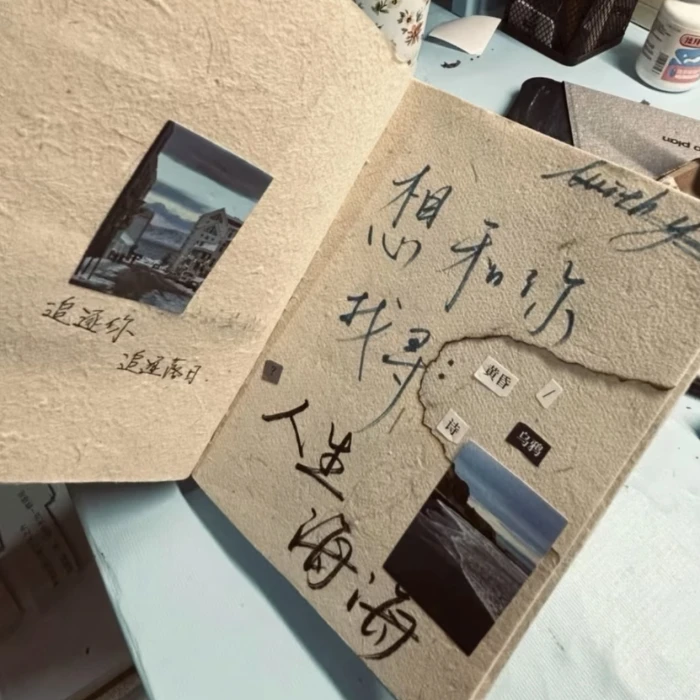 追逐你
追逐落日.
with y
想和你
找寻:
黄昏 /
诗
乌鸦
人生
海海
plan